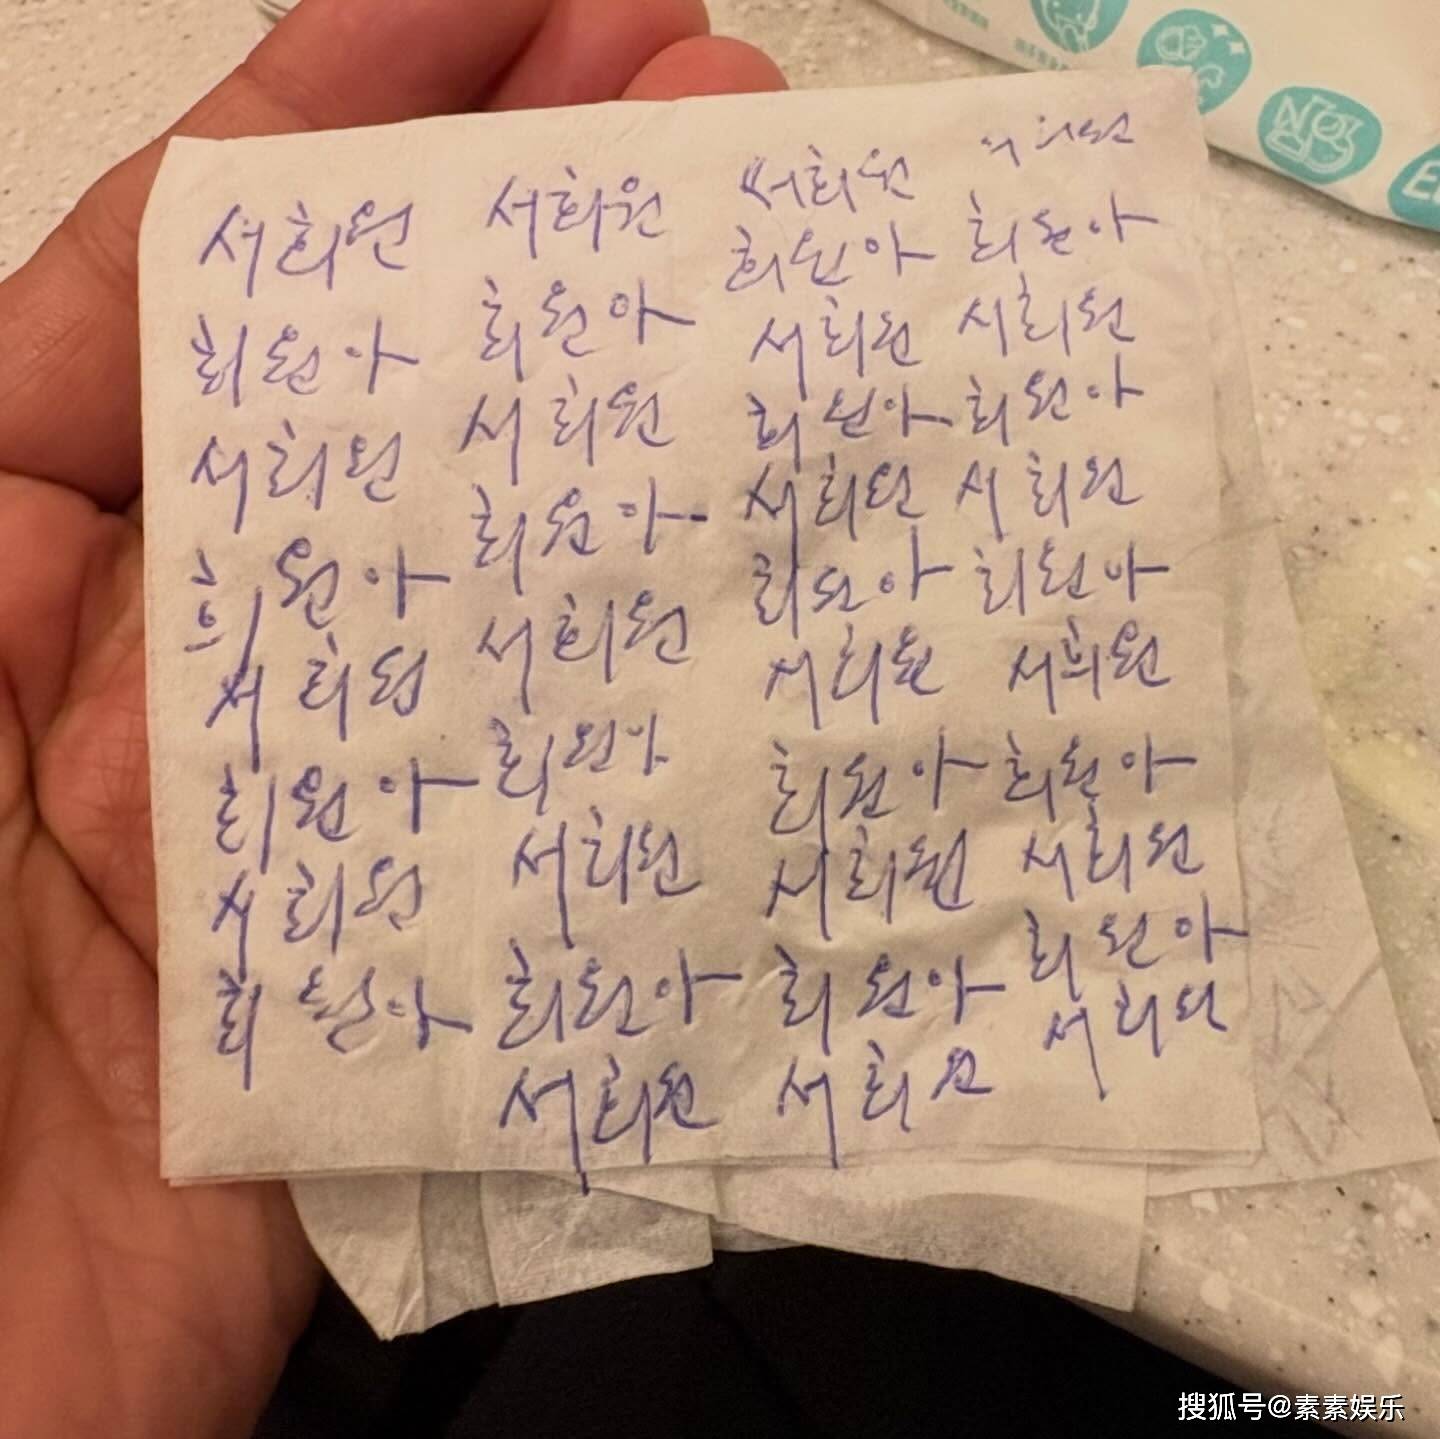 서희원
희원아
서희원
희원아
서희원
희원아
서희원
희원아
서희원
희원아
서희원
희원아
서희원
희원아
서희원
희원아
서희원
서희원
희원아
서희원
희원아
서희원
희원아
서희원
희원아
서희원
희원아
서희원
서희원
희원아
서희원
희원아
서희원
희원아
서희원
희원아
서희원
희원아
서희원
搜狐号@素素娱乐